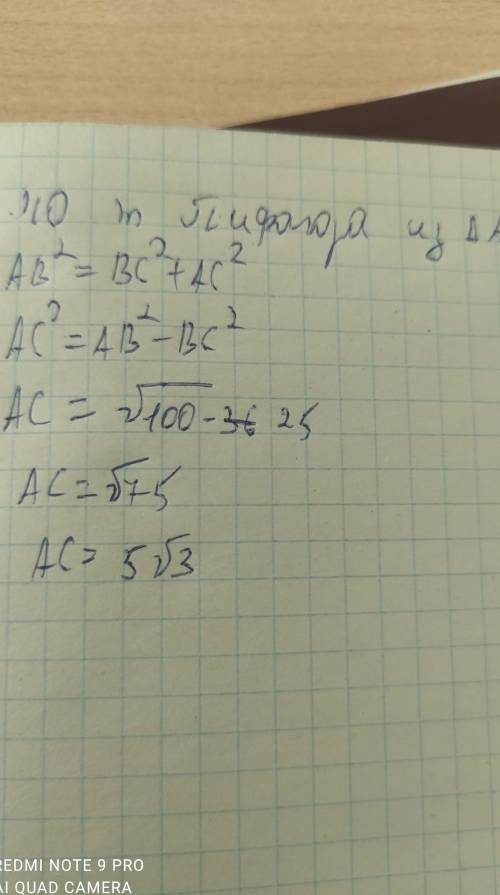 По т Пифагора из ΔA
AB² = BC² + AC²
AC² = AB² - BC²
AC = √100 - 36 25
AC = √75
AC = 5√3
REDMI NOTE 9 PRO
AI QUAD CAMERA